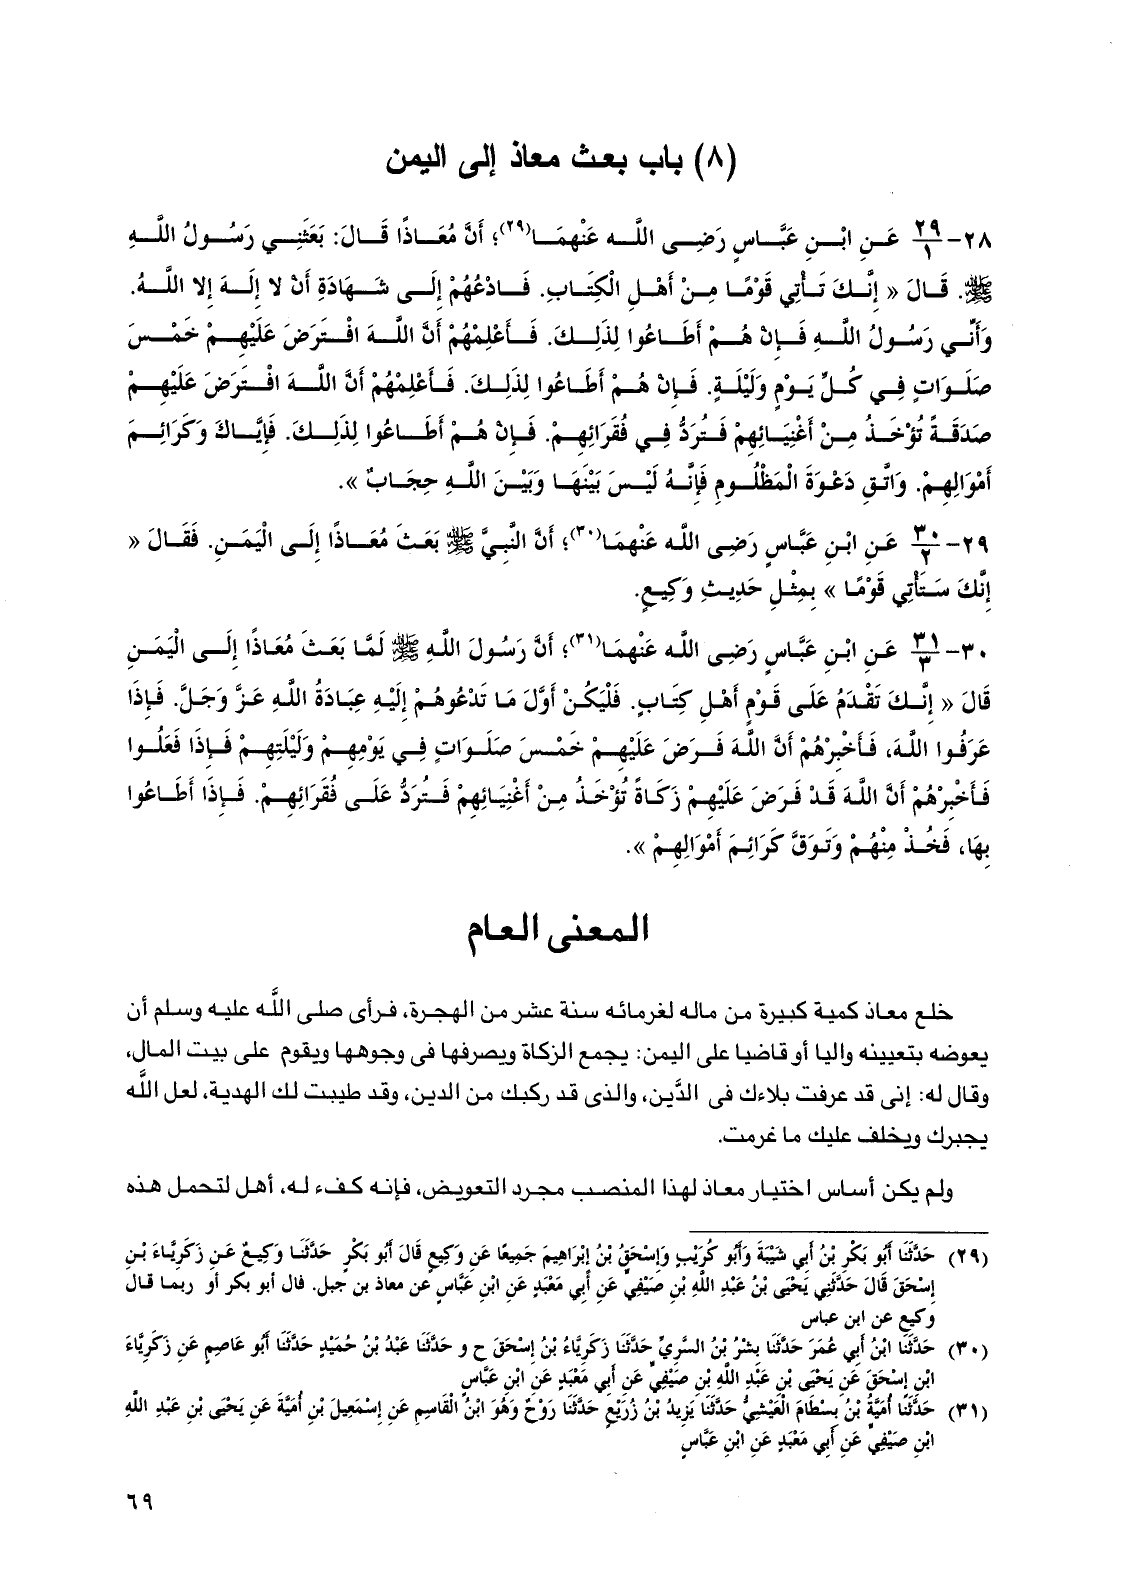 (٨) باب بعث معاذ إلى اليمن
٢٨- ٢٩/١ عَنِ ابْنِ عَبَّاسٍ رَضِى اللَّه عَنْهمَا(٢٩)؛ أَنَّ مُعَاذًا قَالَ: بَعَثَنِي رَسُولُ اللَّهِ
ﷺ. قَالَ « إِنَّكَ تَأْتِي قَوْمًا مِنْ أَهْلِ الْكِتَابِ. فَادْعُهُمْ إِلَى شَهَادَةِ أَنْ لا إِلَهَ إِلا اللَّهُ.
وَأَنِّي رَسُولُ اللَّهِ فَإِنْ هُمْ أَطَاعُوا لِذَلِكَ. فَأَعْلِمْهُمْ أَنَّ اللَّهَ افْتَرَضَ عَلَيْهِمْ خَمْسَ
صَلَوَاتٍ فِي كُلِّ يَوْمٍ وَلَيْلَةٍ. فَإِنْ هُمْ أَطَاعُوا لِذَلِكَ. فَأَعْلِمْهُمْ أَنَّ اللَّهَ افْتَرَضَ عَلَيْهِمْ
صَدَقَةً تُؤْخَذُ مِنْ أَغْنِيَائِهِمْ فَتُرَدُّ فِي فُقَرَائِهِمْ. فَإِنْ هُمْ أَطَاعُوا لِذَلِكَ. فَإِيَّاكَ وَكَرَائِمَ
أَمْوَالِهِمْ. وَاتَّقِ دَعْوَةَ الْمَظْلُومِ فَإِنَّهُ لَيْسَ بَيْنَهَا وَبَيْنَ اللَّهِ حِجَابٌ ».
٢٩- ٣٠/٢ عَنِ ابْنِ عَبَّاسٍ رَضِى اللَّه عَنْهمَا(٣٠)؛ أَنَّ النَّبِيَّ ﷺ بَعَثَ مُعَاذًا إِلَى الْيَمَنِ. فَقَالَ «
إِنَّكَ سَتَأْتِي قَوْمًا » بِمِثْلِ حَدِيثِ وَكِيعٍ.
٣٠- ٣١/٣ عَنِ ابْنِ عَبَّاسٍ رَضِى اللَّه عَنْهمَا(٣١)؛ أَنَّ رَسُولَ اللَّهِ ﷺ لَمَّا بَعَثَ مُعَاذًا إِلَى الْيَمَنِ
قَالَ « إِنَّكَ تَقْدَمُ عَلَى قَوْمٍ أَهْلِ كِتَابٍ. فَلْيَكُنْ أَوَّلَ مَا تَدْعُوهُمْ إِلَيْهِ عِبَادَةُ اللَّهِ عَزَّ وَجَلَّ. فَإِذَا
عَرَفُوا اللَّهَ، فَأَخْبِرْهُمْ أَنَّ اللَّهَ فَرَضَ عَلَيْهِمْ خَمْسَ صَلَوَاتٍ فِي يَوْمِهِمْ وَلَيْلَتِهِمْ فَإِذَا فَعَلُوا
فَأَخْبِرْهُمْ أَنَّ اللَّهَ قَدْ فَرَضَ عَلَيْهِمْ زَكَاةً تُؤْخَذُ مِنْ أَغْنِيَائِهِمْ فَتُرَدُّ عَلَى فُقَرَائِهِمْ. فَإِذَا أَطَاعُوا
بِهَا، فَخُذْ مِنْهُمْ وَتَوَقَّ كَرَائِمَ أَمْوَالِهِمْ ».
المعنى العام
خلع معاذ كمية كبيرة من ماله لغرمائه سنة عشر من الهجرة، فرأى صلى اللَّه عليه وسلم أن
يعوضه بتعيينه واليا أو قاضيا على اليمن: يجمع الزكاة ويصرفها فى وجوهها ويقوم على بيت المال،
وقال له: إنى قد عرفت بلاءك فى الدَّين، والذى قد ركبك من الدين، وقد طيبت لك الهدية، لعل اللَّه
يجبرك ويخلف عليك ما غرمت.
ولم يكن أساس اختيار معاذ لهذا المنصب مجرد التعويض، فإنه كفء له، أهل لتحمل هذه
(٢٩) حَدَّثَنَا أَبُو بَكْرِ بْنُ أَبِي شَيْبَةَ وَأَبُو كُرَيْبٍ وَإِسْحَقُ بْنُ إِبْرَاهِيمَ جَمِيعًا عَنْ وَكِيعٍ قَالَ أَبُو بَكْرٍ حَدَّثَنَا وَكِيعٌ عَنِ زَكَرِيَّاءَ بْنِ
إِسْحَقَ قَالَ حَدَّثَنِي يَحْيَى بْنُ عَبْدِ اللَّهِ بْنِ صَيْفِيٍّ عَنِ أَبِي مَعْبَدٍ عَنِ ابْنِ عَبَّاسٍ عن معاذ بن جبل. قال أبو بكر أو ربما قال
وكيع عن ابن عباس
(٣٠) حَدَّثَنَا ابْنُ أَبِي عُمَرَ حَدَّثَنَا بِشْرُ بْنُ السَّرِيِّ حَدَّثَنَا زَكَرِيَّاءُ بْنُ إِسْحَقَ ح و حَدَّثَنَا عَبْدُ بْنُ حُمَيْدٍ حَدَّثَنَا أَبُو عَاصِمٍ عَنِ زَكَرِيَّاءَ
ابْنِ إِسْحَقَ عَنِ يَحْيَى بْنِ عَبْدِ اللَّهِ بْنِ صَيْفِيٍّ عَنِ أَبِي مَعْبَدٍ عَنِ ابْنِ عَبَّاسٍ
(٣١) حَدَّثَنَا أُمَيَّةُ بْنُ بِسْطَامَ الْعَيْشِيُّ حَدَّثَنَا يَزِيدُ بْنُ زُرَيْعٍ حَدَّثَنَا رَوْحٌ وَهُوَ ابْنُ الْقَاسِمِ عَنِ إِسْمَعِيلَ بْنِ أُمَيَّةَ عَنِ يَحْيَى بْنِ عَبْدِ اللَّهِ
ابْنِ صَيْفِيٍّ عَنِ أَبِي مَعْبَدٍ عَنِ ابْنِ عَبَّاسٍ
٦٩